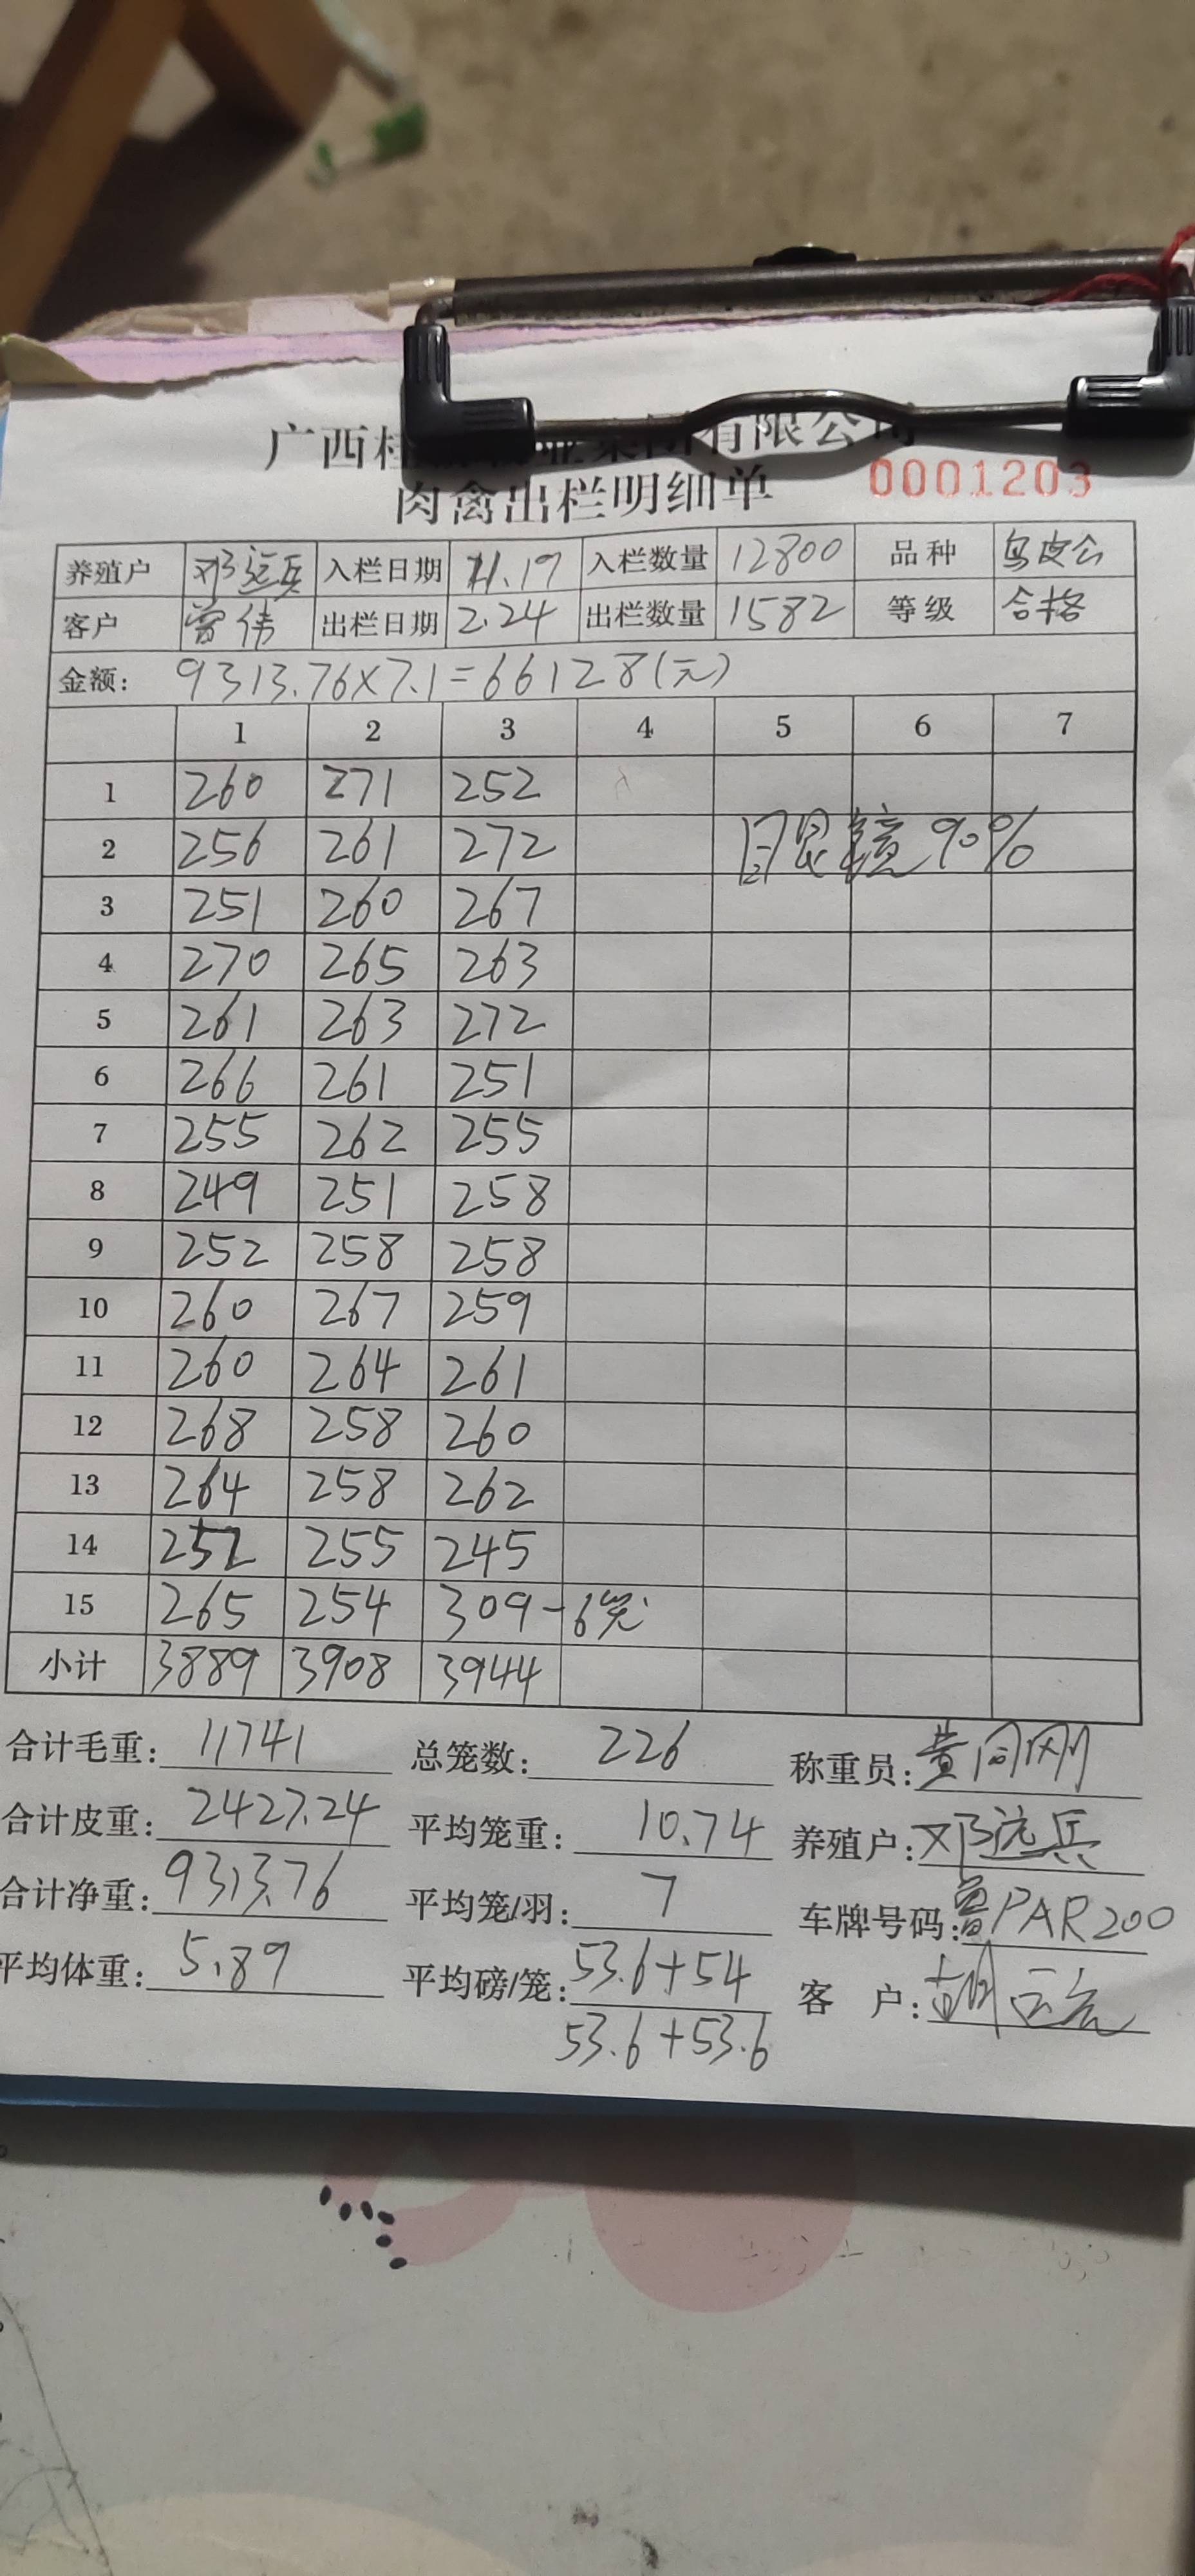 广西桂 牧业集团有限公司
肉禽出栏明细单 0001203
养殖户 邓远兵 入栏日期 11.19 入栏数量 12800 品种 乌皮公
客户 曾伟 出栏日期 2.24 出栏数量 1582 等级 合格
金额: 9313.76×7.1=66128(元)
1 2 3 4 5 6 7
1 260 271 252
2 256 261 272 眼镜90%
3 251 260 267
4 270 265 263
5 261 263 272
6 266 261 251
7 255 262 255
8 249 251 258
9 252 258 258
10 260 267 259
11 260 264 261
12 268 258 260
13 264 258 262
14 252 255 245
15 265 254 309-6笼
小计 3889 3908 3944
合计毛重: 11741 总笼数: 226 称重员: 黄同刚
合计皮重: 2427.24 平均笼重: 10.74 养殖户: 邓远兵
合计净重: 9313.76 平均笼/羽: 7 车牌号码: 鲁PAR200
平均体重: 5.89 平均磅/笼: 53.6+54 客 户: 胡
53.6+53.6